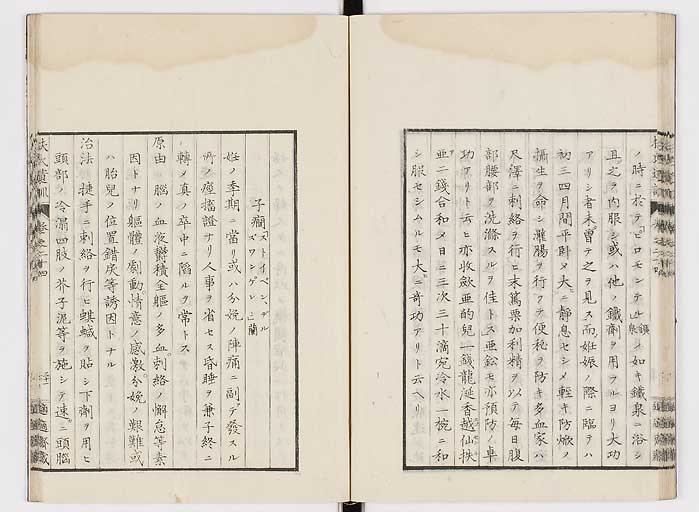 ノ時ニ於テ「ピロモンテ」鑛泉ノ如キ鐵泉ニ浴シ
且之ヲ内服シ或ハ他ノ鐵劑ヲ用フルヨリ大功
アリシ者未曽テ之ヲ見ス而妊娠ノ際ニ臨テハ
初三四月間平臥メ大ニ靜息セシメ輕キ防焮ノ
攝生ヲ命シ灌腸ヲ行フテ便秘ヲ防キ多血家ハ
尺澤ニ刺絡ヲ行ヒ末篤栗加利精ヲ以テ毎日腹
部腰部ヲ洗滌スルヲ佳トス亜鉛モ亦預防ノ
功アリト云ヒ亦收斂亜的兒一錢龍涎香越仙
並二錢合和メ日ニ三次三十滴宛冷水一椀ニ和
シ服セシムルモ大ニ奇功アリト云ヘリ
子癇「ストイペン、デル
ズワンゲレ」蘭
妊ノ季期ニ當リ或ハ分娩ノ陣痛ニ副テ發スル
所ノ痙搐證ナリ人事ヲ省セス昏睡ヲ兼子終ニ
轉メ真ノ卒中ニ陷ルヲ常トス
原由 腦ノ血液欝積全軀ノ多血刺絡ノ懈怠等素
因トナリ軀體ノ劇動情意ノ感激分娩ノ艱難或
ハ胎兒ノ位置錯戻等誘因トナル
治法 捷手ニ刺絡ヲ行ヒ蜞鍼ヲ貼シ下劑ヲ用ヒ
頭部ノ冷溻四肢ノ芥子泥等ヲ施シテ速ニ頭腦
扶氏遺訓 卷之二十四